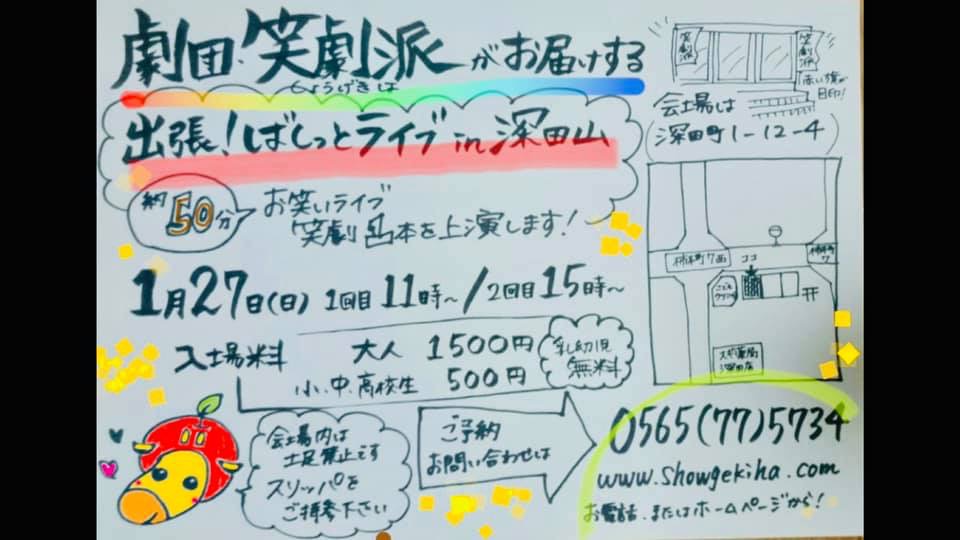 劇団 笑劇派がお届けする
しょうげきは
出張!ばしっとライブin深田山
約50分
お笑いライブ
笑劇3本を上演します!
1月27日(日) 1回目11時～/2回目15時～
入場料 大人 1500円
小.中.高校生 500円
乳幼児
無料
会場内は
土足禁止です
スリッパを
ご持参下さい
ご予約
お問い合わせは
0565(77)5734
www.showgekiha.com
お電話.またはホームページから!
笑劇派
笑劇派
赤い旗が
目印!
会場は
深田町1-12-4
柿本町7西
ココ
柿本町
7
スギ薬局
深田店